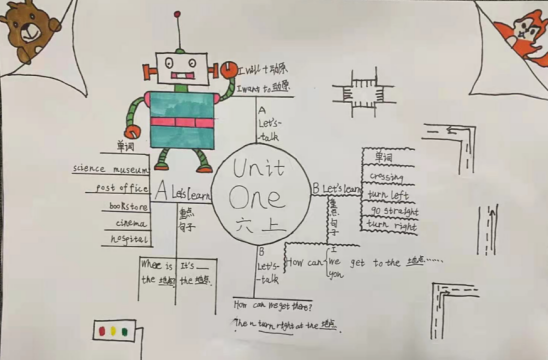 I will + 动原.
I want to 动原.
A
Let's-
talk
单词
science museum
post office
bookstore
cinema
hospital
A Let's learn
重点
句子
Where is
the 地点?
It's __
the 地点.
Unit
One
六上
B Let's learn
单词
crossing
turn left
go straight
turn right
重点
句子
How can
I
we
you
get to the 地点......
B
Let's-
talk
How can we get there?
The n turn right at the 地点.